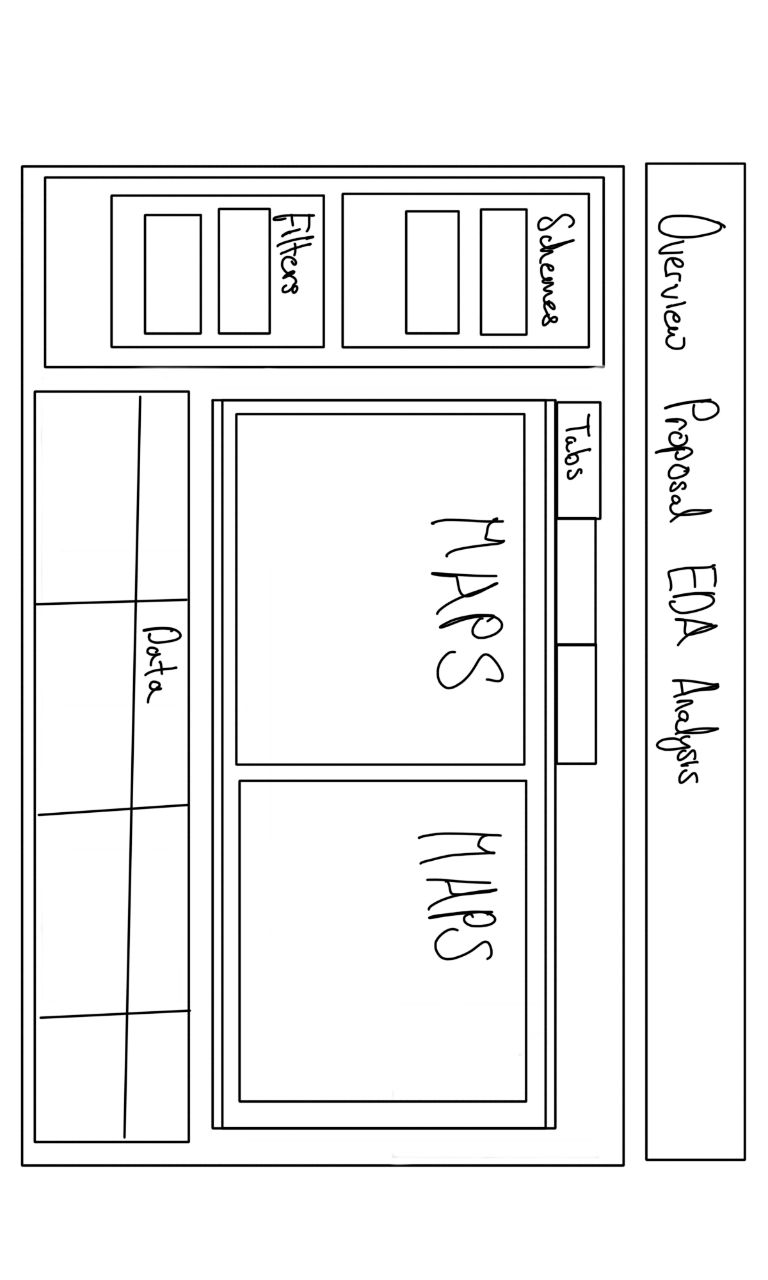 Overview Proposal EDA Analysis
Schemes
Filters
Tabs
MAPS
MAPS
Data